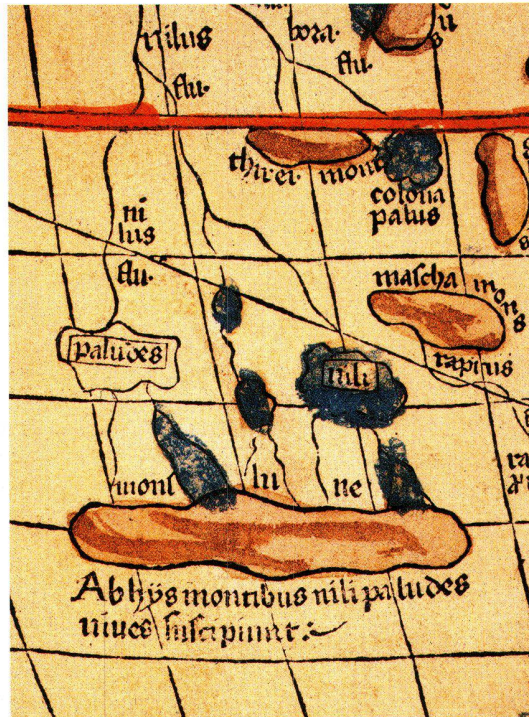 nilus
flu.
bora.
flu.
thirer mons
colona
palus
ni
lus
flu.
mascha mons
rapitus
paludes
nili
mons lu ne
ra
Abhÿs montibus nili paludes
niues suscipiunt: